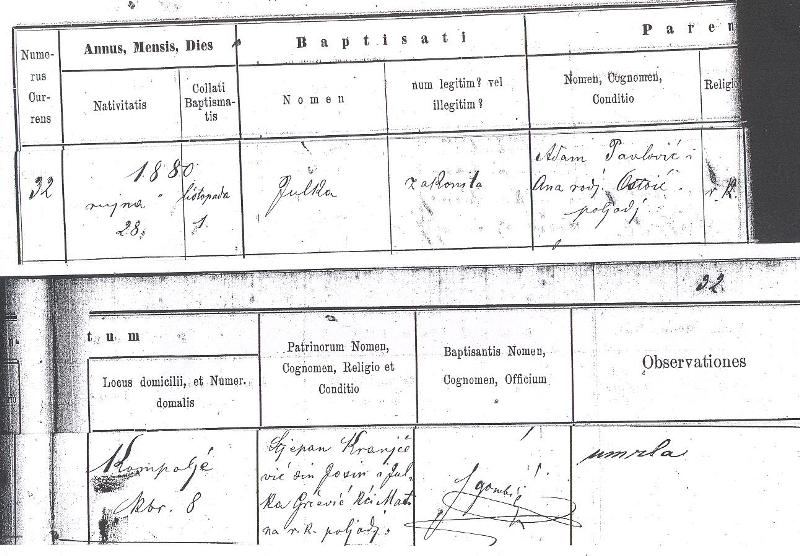 Numo-
rus
Cur-
rens
Annus, Mensis, Dies
Nativitatis
Collati
Baptisma-
tis
Baptisati
Nomen
num legitim? vel
illegitim?
Paren
Nomen, Cognomen,
Conditio
Religio
32
1880
rujna
28.
listopada
1.
Julka
zakonita
Adam Pavlović i
Ana rodj. Ostović
poljodj.
r. k.
32.
tum
Locus domicilii, et Numer.
domalis
Patrinorum Nomen,
Cognomen, Religio et
Conditio
Baptisantis Nomen,
Cognomen, Officium
Observationes
Kompolje
kbr. 8
Stjepan Kranjče
vić sin Josin i Jul-
ka Grčević kći Mati-
na r. k. poljodj.
umrla